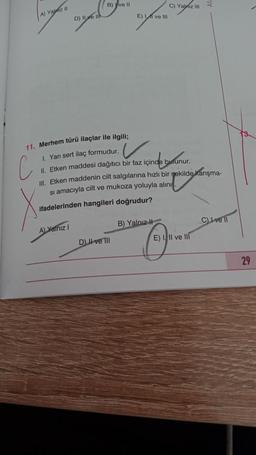 A) Yalnız II
B) I ve II
C) Yalnız III
D) II ve III
E) I, II ve III
11. Merhem türü ilaçlar ile ilgili;
I. Yarı sert ilaç formudur.
II. Etken maddesi dağıtıcı bir faz içinde bulunur.
III. Etken maddenin cilt salgılarına hızlı bir şekilde karışma-
sı amacıyla cilt ve mukoza yoluyla alınır.
ifadelerinden hangileri doğrudur?
A) Yalnız I
B) Yalnız II
C) I ve II
D) II ve III
E) I, II ve III
29